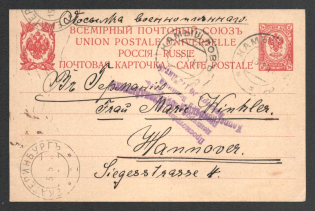 Посылка военно-плѣннаго.
ВСЕМІРНЫЙ ПОЧТОВЫЙ СОЮЗЪ
UNION POSTALE UNIVERSELLE
РОССІЯ RUSSIE
ПОЧТОВАЯ КАРТОЧКА CARTE POSTALE
КАМЫШЛОВЪ
Въ Германію
Frau Marie Winkler.
Hannover.
Siegesstrasse 4.
ЕКАТЕРИНБУРГЪ